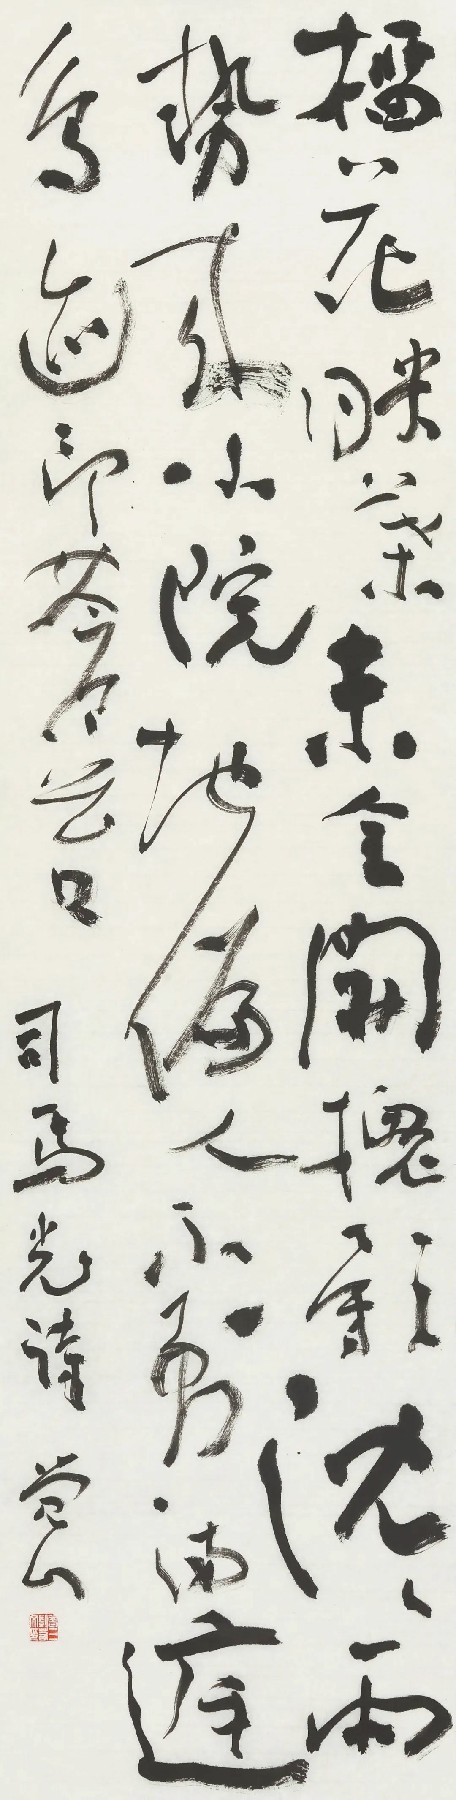 榴花映葉未全開槐影沈〻雨
勢來小院地偏人不到滿庭
鳥迹印蒼苔 司馬光詩